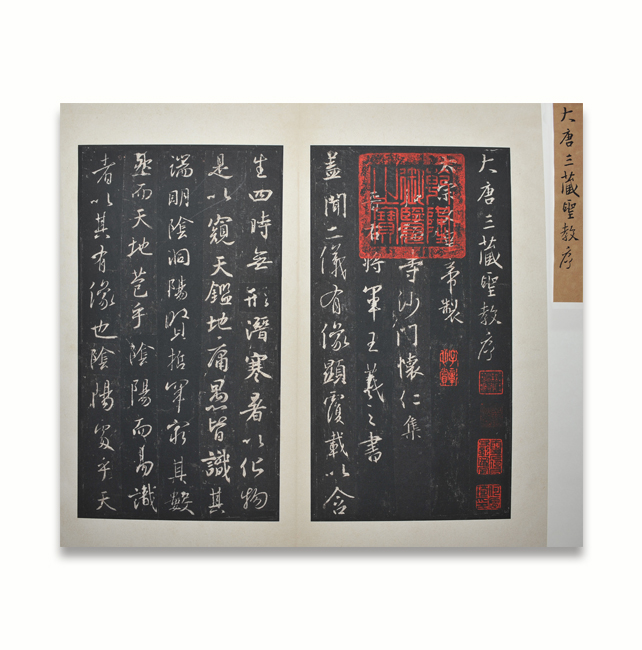 大唐三藏聖教序
大唐三藏聖教序
太宗文皇帝製
寺沙門懷仁集
晉右將軍王羲之書
蓋聞二儀有像顯覆載以含
生四時無形潛寒暑以化物
是以窺天鑑地庸愚皆識其
端明陰洞陽賢哲罕窮其數
然而天地苞乎陰陽而易識
者以其有像也陰陽處乎天